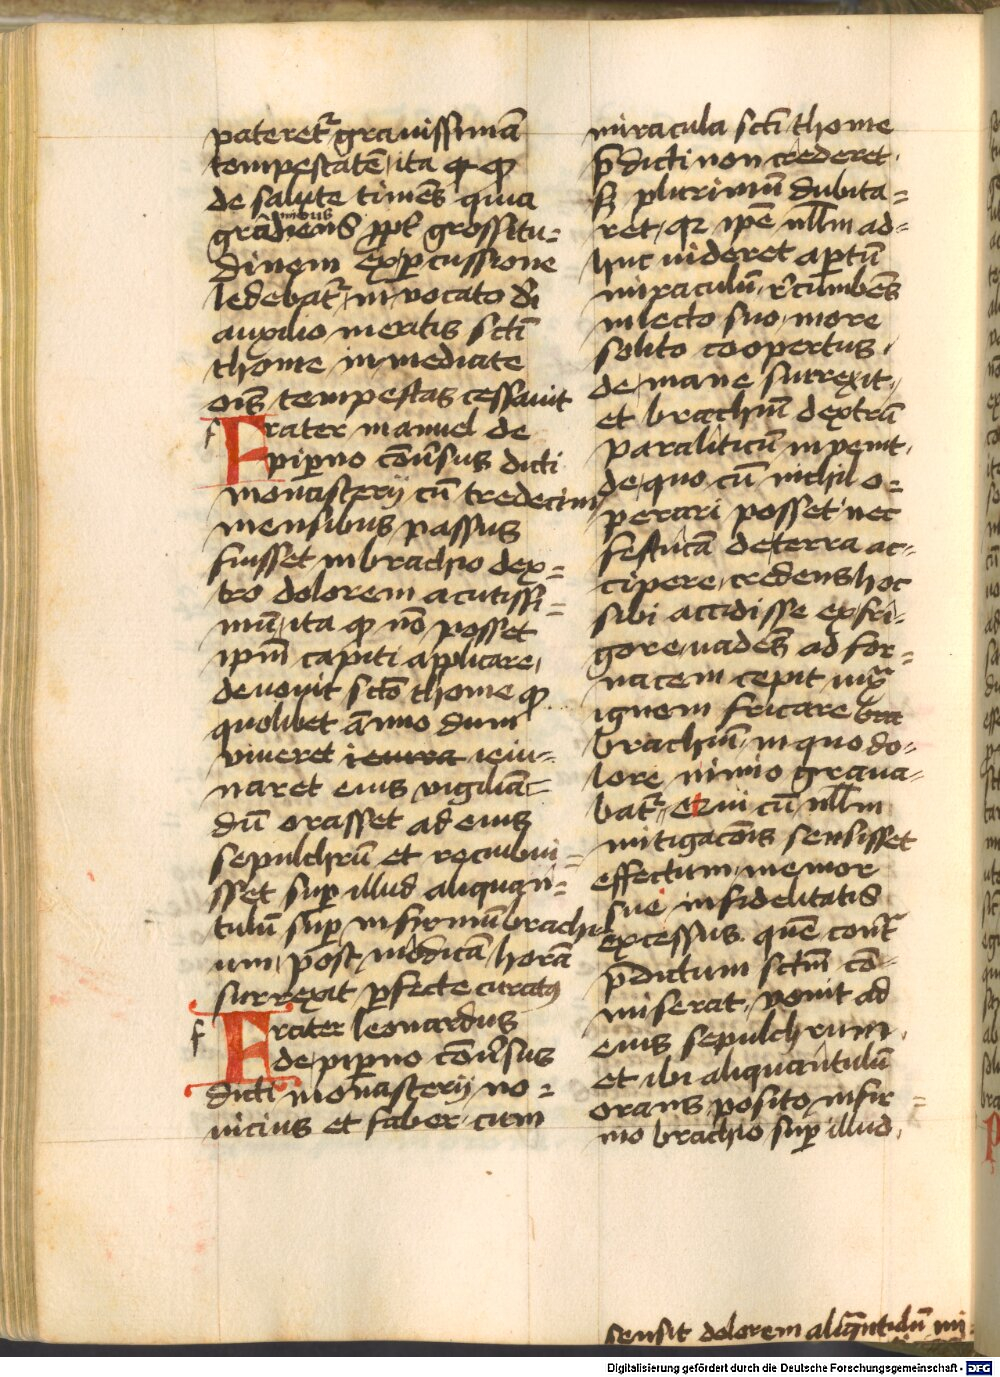 pateret᷑ grauissimā
tempestatē, ita ꝙ
de salute timēs quia
grādinibus ꝓpt᷑ grossitu=
dinem ex ꝑcussione
ledebat᷑, inuocato dei
auxilio meritis scti̅
thome inmediate
oīs tempestas cessauit
f Frater manuel de
pipno cōu̅sus dicti
monasterij cū tredecim
mensibus passus
fuisset in brachio dex=
tro dolorem acutissi=
mū, ita ꝙ nō posset
ip̅m capiti applicare,
deuouit scto̅ thome ꝙ
quolibet anno dum
viueret ieiu=
naret eius vigiliā=
dū orasset ad eius
sepulchrū et recubui=
sset suꝑ illud aliquan=
tulū suꝑ infirmū brachi
um, post modicā horā
surrexit ꝑfecte curatꝰ
f Frater leonardus
de pipno cōu̅sus
dicti monasterij no=
uicius et faber cum
miracula scti̅ thome
p̅dicti non crederet,
sꝫ plurimū dubita=
ret, qꝛ ipe̅ nll̅m ad=
huc uideret aptū
miraculū, recumbēs
in lecto suo, more
solito coopertus,
de mane surrexit,
et brachiū dextrū
paraliticū inuenit,
de quo cū nichil o=
perari posset nec
festucā de terra ac=
cipere, credens hoc
sibi accidisse ex fri=
gore, uadēs ad for=
nacem cepit iuxͣ
ignem fricare bra
brachiū, in quo do=
lore nimio graua=
bat᷑, cū nll̅m
mitigacōis sensisset
effectum, memor
sue infidelitatis
excessus quē cont᷑
p̅dictum sctm̅ cō=
miserat, venit ad
eius sepulchrum,
et ibi aliquantulū
orans posito infir=
mo brachio suꝑ illud,
sensit dolorem aliqͣntulū mi=
Digitalisierung gefördert durch die Deutsche Forschungsgemeinschaft - DFG